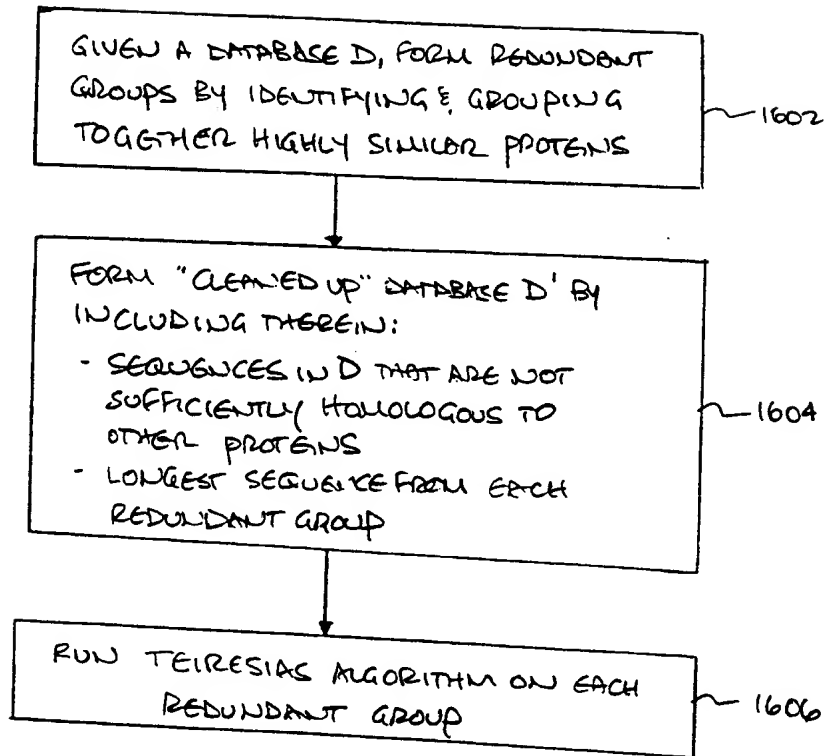 GIVEN A DATABASE D, FORM REDUNDANT
GROUPS BY IDENTIFYING & GROUPING
TOGETHER HIGHLY SIMILAR PROTEINS
1602
FORM "CLEANED UP" DATABASE D' BY
INCLUDING THEREIN:
- SEQUENCES IN D THAT ARE NOT
SUFFICIENTLY HOMOLOGOUS TO
OTHER PROTEINS
- LONGEST SEQUENCE FROM EACH
REDUNDANT GROUP
1604
RUN TEIRESIAS ALGORITHM ON EACH
REDUNDANT GROUP
1606